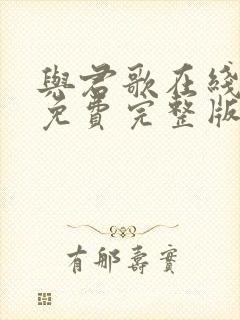 與君歌在綫
免費完整版
有那壽實